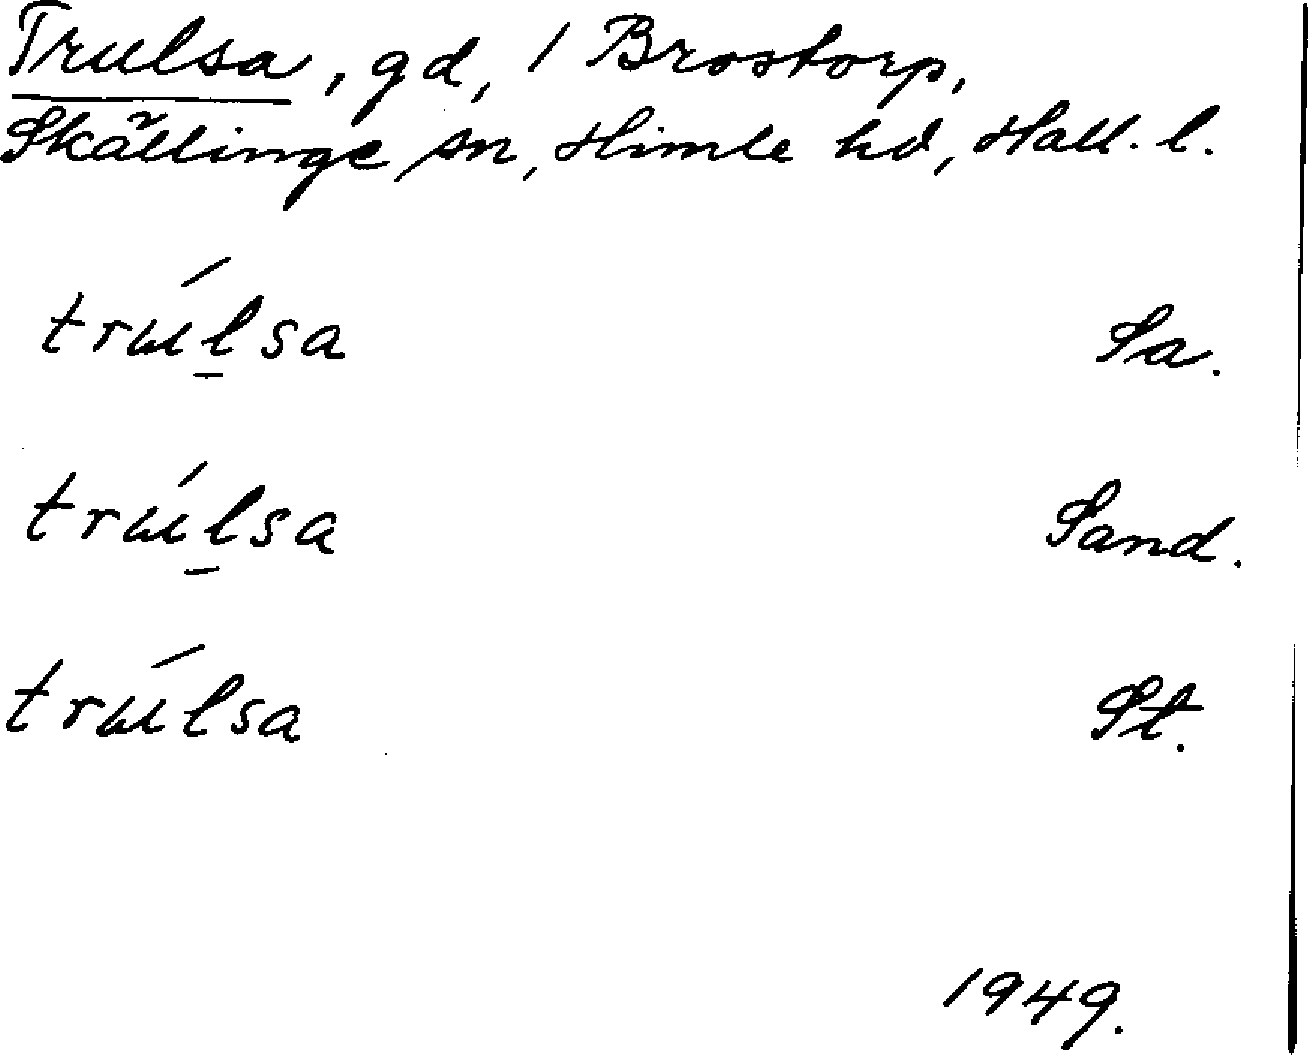 Trulsa, gd, 1 Brostorp,
Skällinge sn, Himle hd, Hall. l.
trúl̲sa Sa.
trúl̲sa Sand.
trúlsa St.
1949.